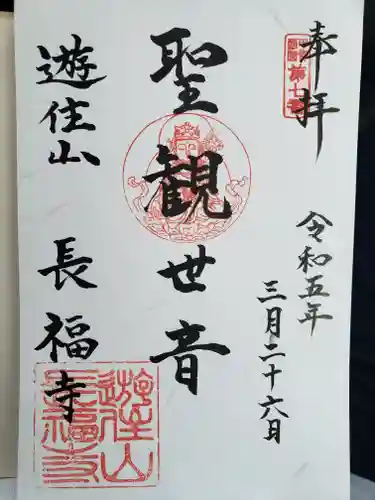 奉拝
令和五年
三月二十六日
聖観世音
遊住山 長福寺
遊住山
長福寺